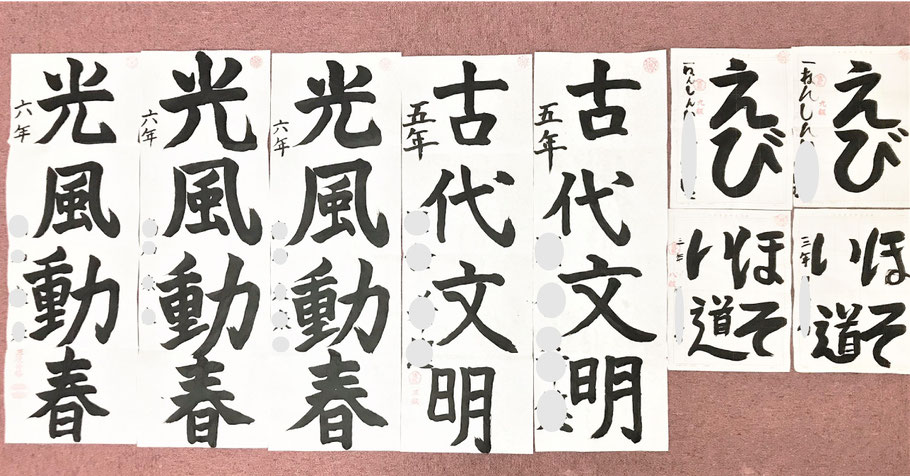 光風動春
六年
光風動春
六年
光風動春
六年
古代文明
五年
古代文明
五年
えび
一ねんしん
えび
一ねんしん
ほそ
い道
ほそ
い道
三年